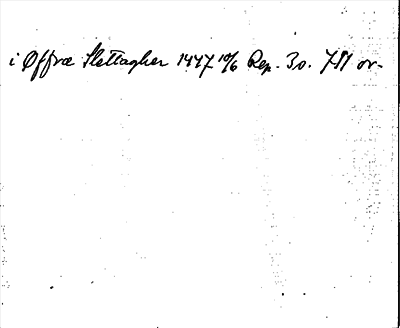 i Øffræ Slettagher 1447 10/6 Rep. 30. 781 or.